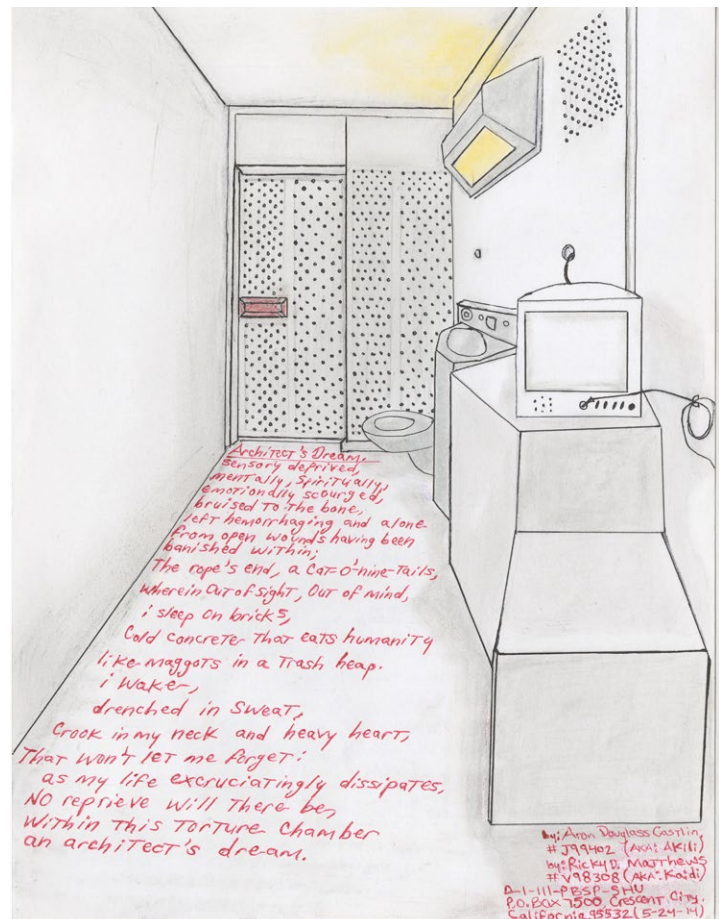 Architect's Dream
sensory deprived,
mentally, spiritually,
emotionally scourged,
bruised to the bone,
left hemorrhaging and alone
from open wounds having been
banished within;
The rope's end, a Cat-O'-nine-Tails,
wherein Out of sight, Out of mind,
i sleep on bricks,
Cold concrete that eats humanity
like maggots in a trash heap.
i wake,
drenched in sweat,
Crook in my neck and heavy heart,
That won't let me forget:
as my life excruciatingly dissipates,
NO reprieve will there be,
within this Torture Chamber
an architect's dream.
by: Aron Douglass Gastlin,
# J99402 (AKA: AKili)
by: Ricky D. Matthews
# V98308 (AKA: Kaidi)
D-1-111-PBSP-SHU
P.O. Box 7500, Crescent City,
California 95532 (5-24-14)